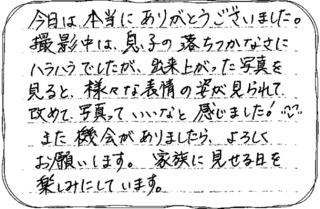 今日は、本当にありがとうございました。
撮影中は、息子の落ちつかなさに
ハラハラでしたが、出来上がった写真を
見ると、様々な表情の姿が見られて
改めて、写真っていいなと感じました!
また機会がありましたら、よろしく
お願いします。家族に見せる日を
楽しみにしています。